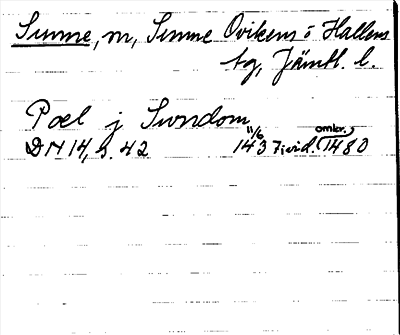 Sunne, m, Sunne Ovikens o Hallens
tg, Jämtl. l.
Poel j Swndom
DN 14, s. 42 11/6 1437 i vid. (omkr. 1480